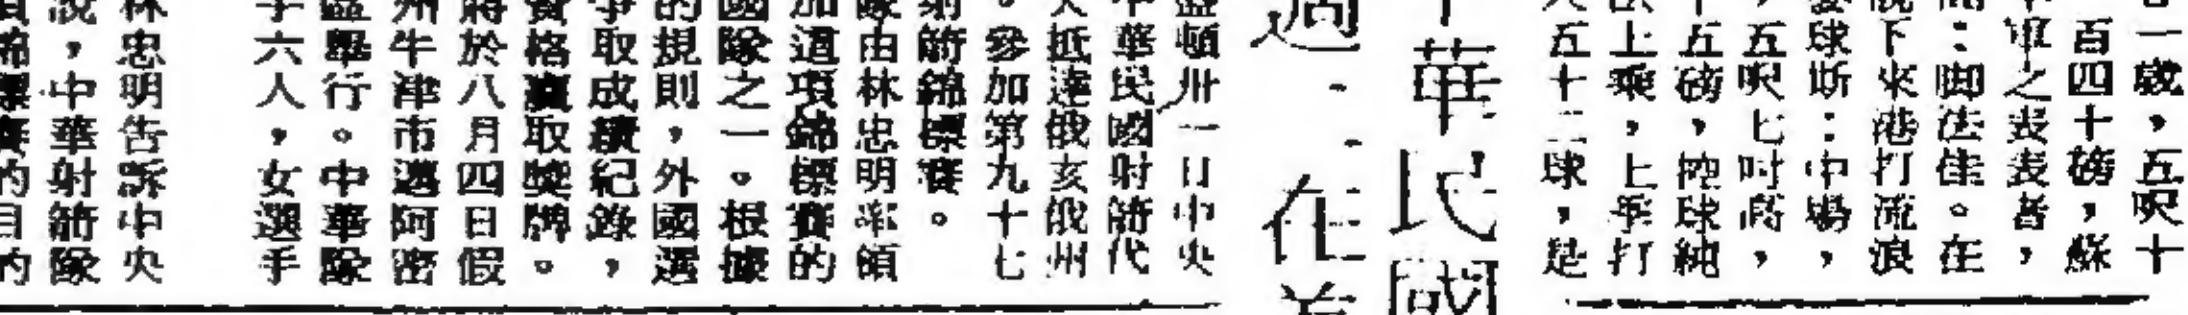 一歲，五呎十
百四十磅，蘇
軍之表表者，
：脚法佳。在
下來港打流浪
球斯：中場，
，五呎七吋高，
五磅，控球純
上乘，上季打
五十二球，是
華民國
過
在
頓卅一日中央
中華民國射箭代
抵達俄亥俄州
。參加第九十七
射箭錦標賽。
隊由林忠明率領
加這項錦標賽的
國隊之一。根據
的規則，外國選
爭取成績紀錄，
資格賽取獎牌。
將於八月四日假
州牛津市邁阿密
區舉行。中華隊
手六人，女選手
林忠明告訴中央
說，中華射箭隊
錦標賽的目的